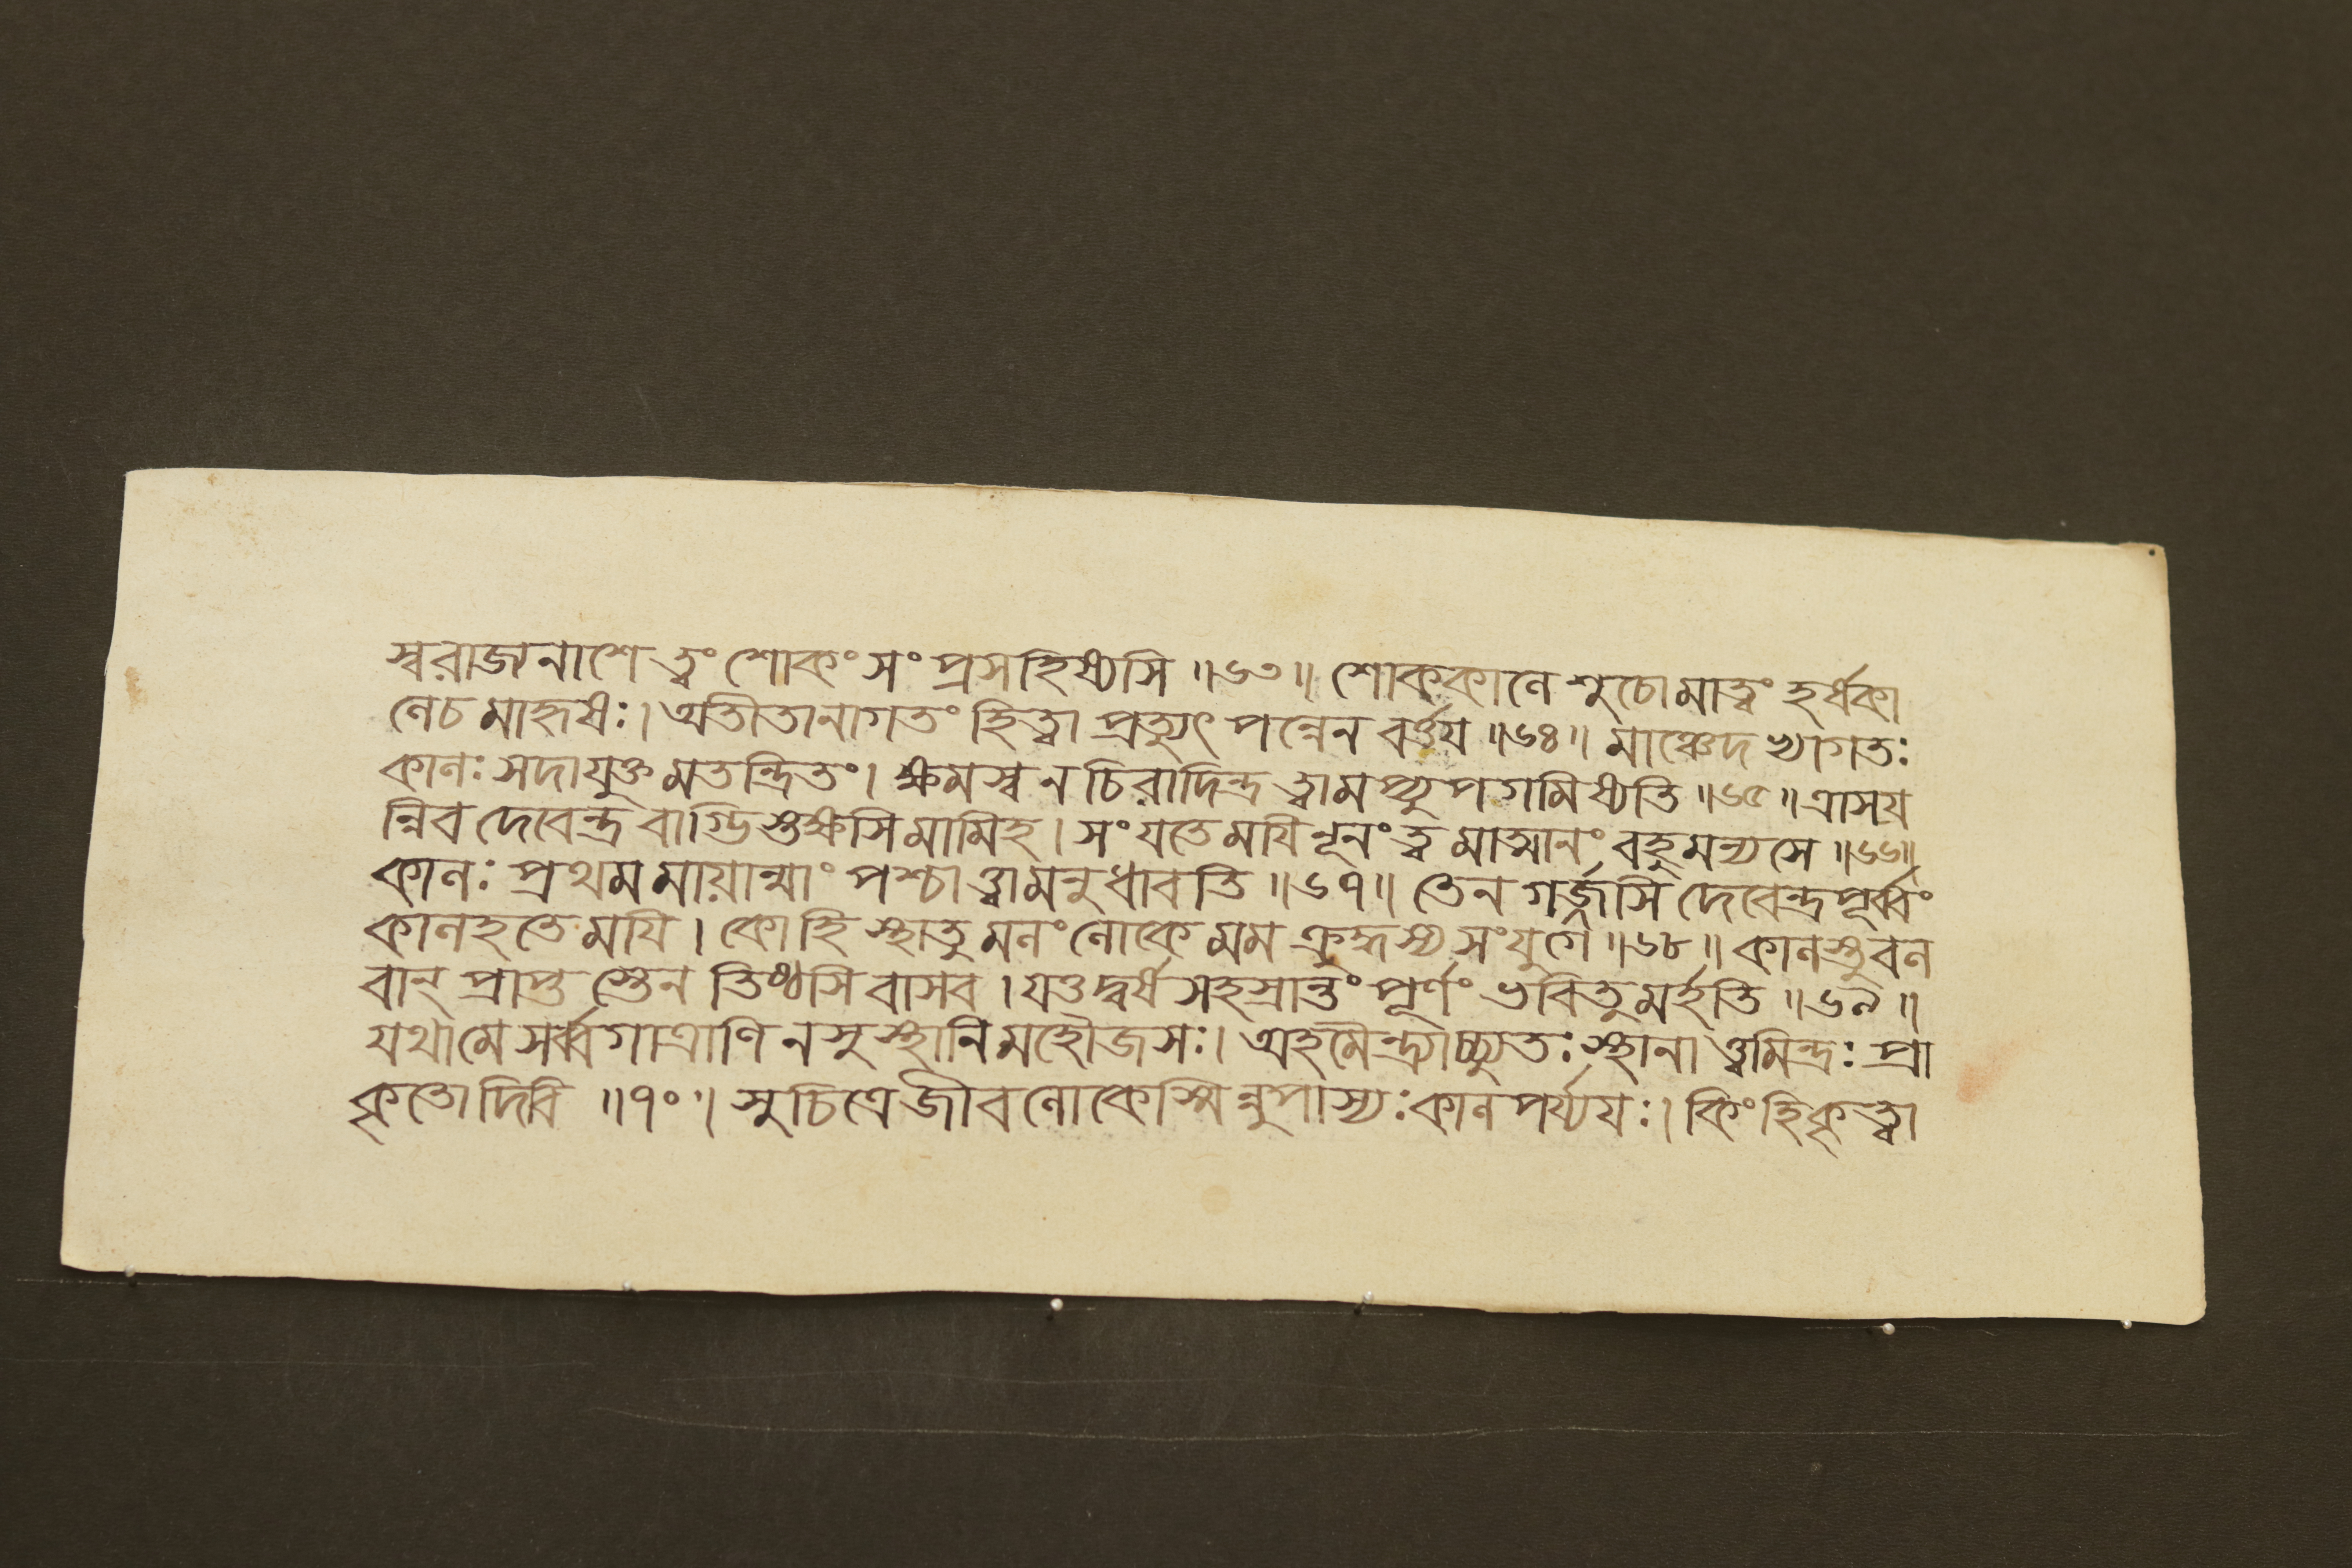 স্বরাজনাশে ত্বং শোকং সং প্রসহিষ্যসি ॥৬৩॥ শোককালে শুচোমাত্বং হর্ষকা
লেচ মাহৃষঃ। অতীতানাগতং হিত্বা প্রত্যুৎ পন্নেন বর্ত্তয় ॥৬৪॥ মাঞ্চেদ খ্যাগতঃ
কালঃ সদাযুক্ত মতন্দ্রিতং। ক্ষমস্ব ন চিরাদিন্দ্র ত্বামপ্যুপগমিষ্যতি ॥৬৫॥ ত্রাসয়
ন্নিব দেবেন্দ্র বাগ্ভিস্তক্ষসি মামিহ। সংযতে ময়ি নূনং ত্বমাত্মানং বহু মন্যসে ॥৬৬॥
কালঃ প্রথম মায়ান্মাং পশ্চাত্ত্বামনুধাবতি ॥৬৭॥ তেন গর্জ্জসি দেবেন্দ্র পূর্ব্বং
কালহতে ময়ি। কোহি স্থাতু মলং লোকে মম ক্রুদ্ধস্য সংযুগে ॥৬৮॥ কালস্তু বল
বান্ প্রাপ্ত স্তেন তিষ্ঠসি বাসব। যত্তদ্বর্ষ সহস্রান্তং পূর্ণং ভবিতুমর্হতি ॥৬৯॥
যথা মে সর্ব্ব গাত্রাণি নসুস্থানি মহৌজসঃ। অহমৈন্দ্র্যাচ্চ্যুতঃ স্থানা ত্ত্বমিন্দ্রঃ প্রা
কৃতো দিবি ॥৭০॥ সুচিত্রে জীবলোকেস্মিন্নুপাস্যঃ কাল পর্য্যয়ঃ। কিং হি কৃত্বা